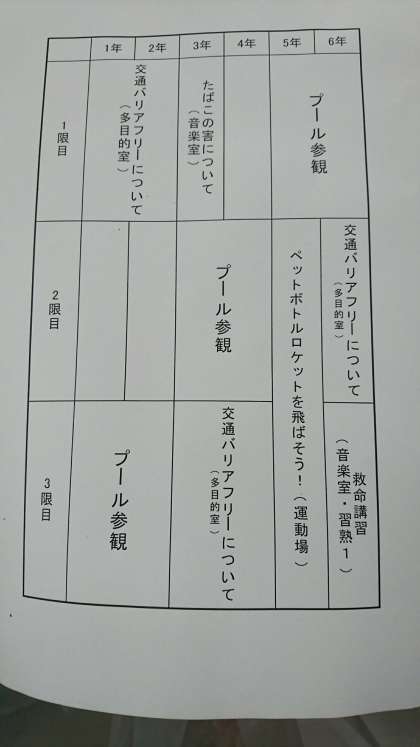 1年
2年
3年
4年
5年
6年
1限目
交通バリアフリーについて
(多目的室)
たばこの害について
(音楽室)
プール参観
2限目
プール参観
ペットボトルロケットを飛ばそう!(運動場)
交通バリアフリーについて
(多目的室)
3限目
プール参観
交通バリアフリーについて
(多目的室)
救命講習
(音楽室・習熟1)